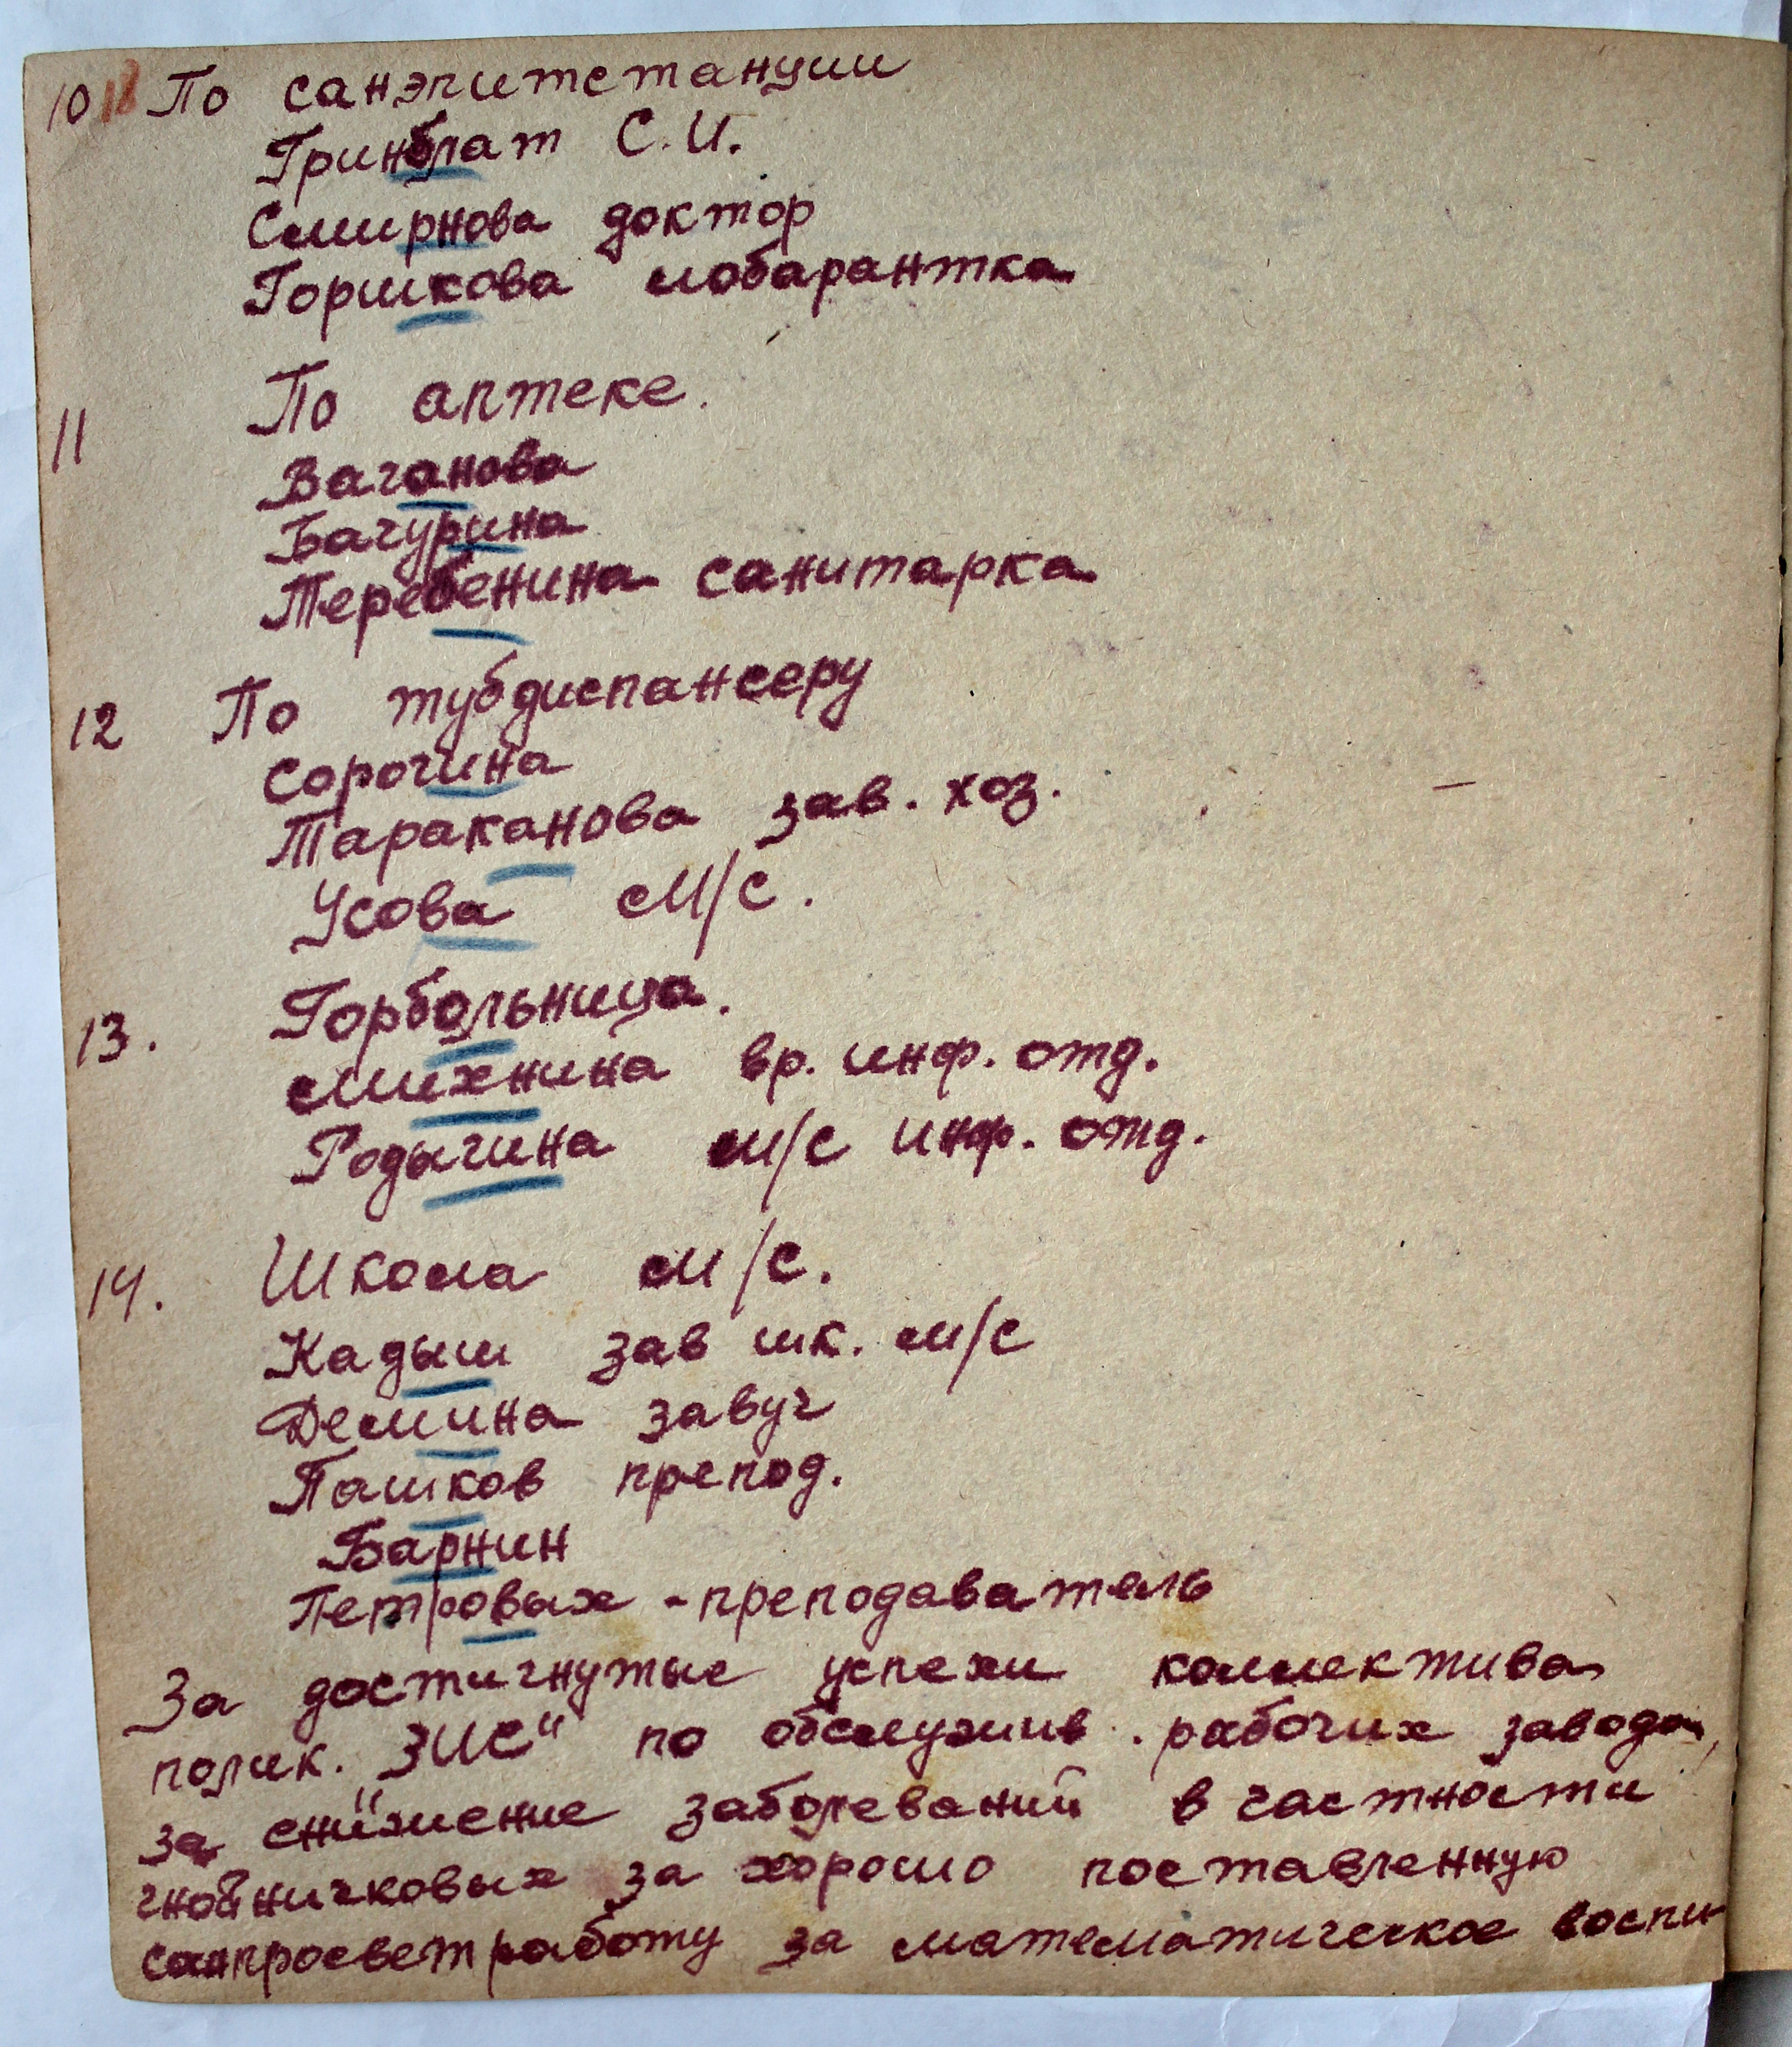 10 18 По санэпитстанции
Гринблат С.И.
Смирнова доктор
Горшкова лобарантка
11 По аптеке.
Ваганова
Бачурина
Теребенина санитарка
12 По тубдиспансеру
Сорочина
Тараканова зав. хоз.
Усова м/с.
13. Горбольница.
Михнина вр. инф. отд.
Родыгина м/с инф. отд.
14. Школа м/с.
Кадыш зав шк. м/с
Демина завуч
Пашков препод.
Барнин
Петровых - преподаватель
За достигнутые успехи коллектива
полик. „ЗИС" по обслужив. рабочих завода,
за снижение заболеваний в частности
гнойничковых за хорошо поставленную
санпросветработу за математическое воспи-